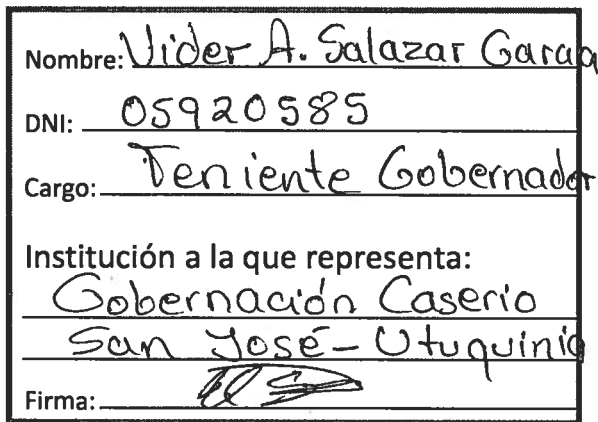 Nombre: Vider A. Salazar Garcia
DNI: 05920585
Cargo: Teniente Gobernador
Institución a la que representa:
Gobernación Caserio
San José - Utuquinia
Firma: